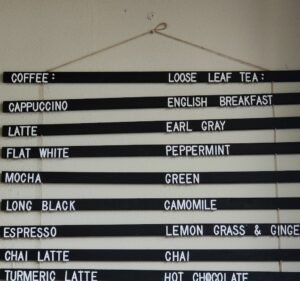 COFFEE: LOOSE LEAF TEA:
CAPPUCCINO ENGLISH BREAKFAST
LATTE EARL GRAY
FLAT WHITE PEPPERMINT
MOCHA GREEN
LONG BLACK CAMOMILE
ESPRESSO LEMON GRASS & GINGE
CHAI LATTE CHAI
TURMERIC LATTE HOT CHOCOLATE